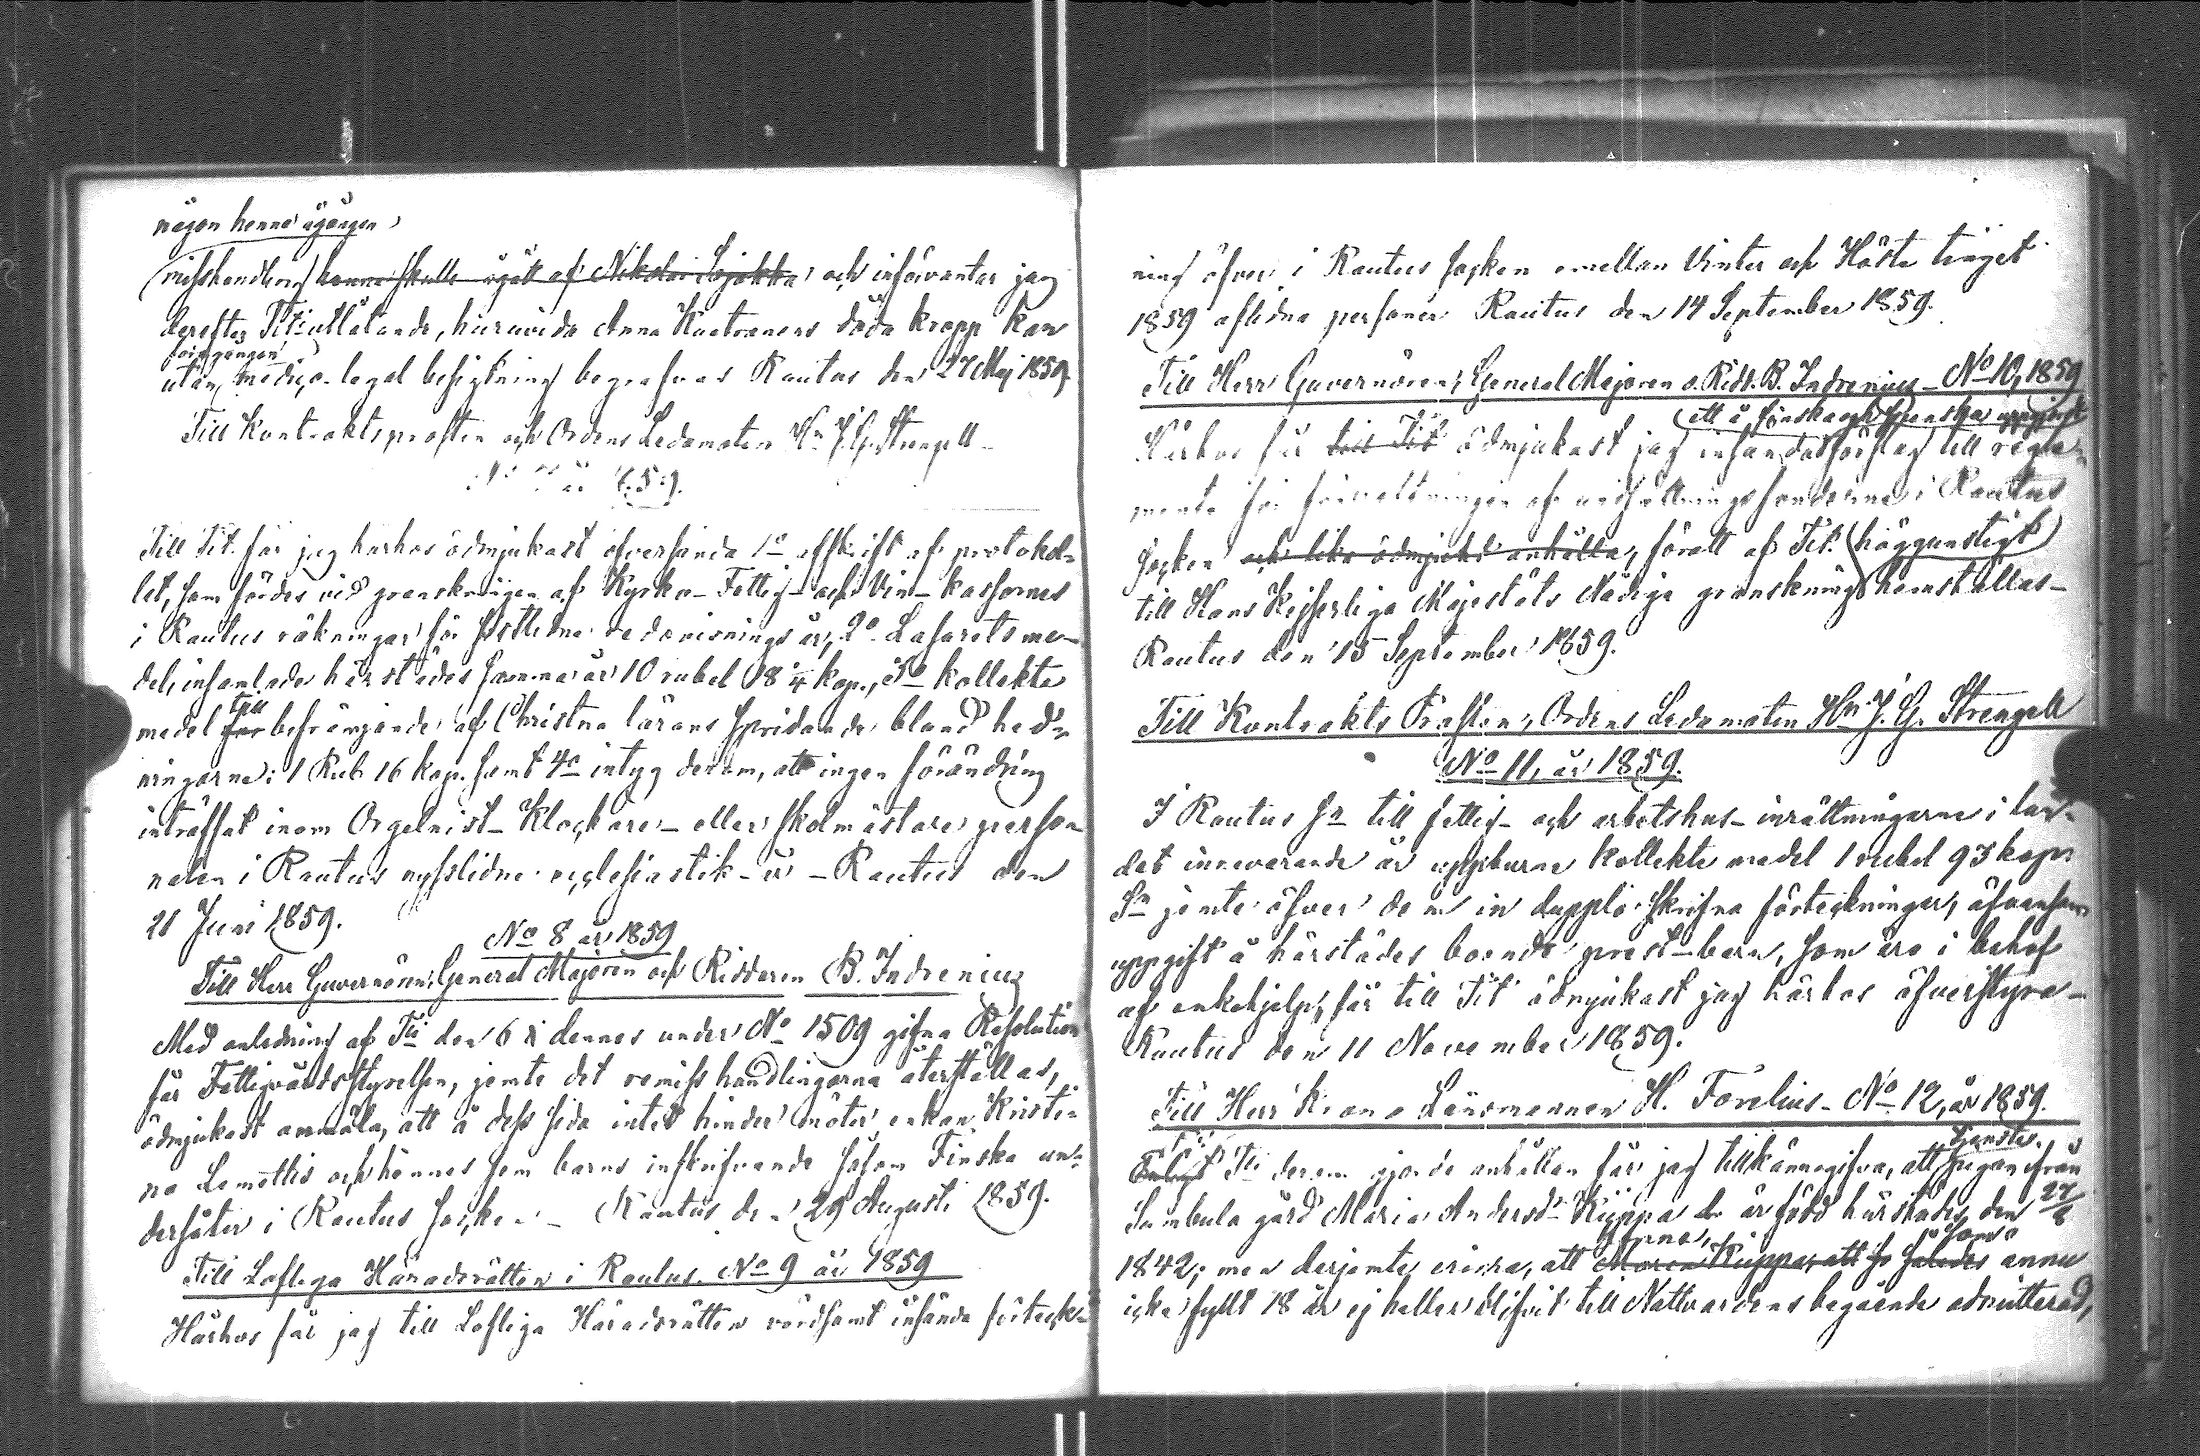 någon henne öfvergången
misshandling henne skulle ägat af Nikolai Lojokka och införväntar jag
derefter Tit: utlåtande, huruvida Anna Kaatranens döda kropp kan
föregången
utan medico-legal besigtning begrafvas Rautus den 27 Maj 1859.
Till Kontraktsprosten och Ordens Ledamoten Hr J. G. Strengell
N: 7 år 1859.
Till Tit. får jag härhos ödmjukast öfversända 1o afskrift af protokol-
let, som fördes vid granskningen af Kyrko- Fattig- och Vin- kassornes
i Rautus räkningar för sistledne redovisnings år, 2o Lasaretsme-
del, insamlade härstädes samma år 10 rubel 18 1/4 kop., 3o kollekte
till
medel för befrämjande af Christna lärans spridande bland hed-
ningarne: 1 Rub. 16 kop. samt 4o intyg derom, att ingen förändring
inträffat inom Orgelnist- Klockare- eller skolmästare person-
nalen i Rautus nysslidne ecclesiastik- år - Rautus den
21 Juni 1859.
No 8 år 1859
Till Herr Guvernören, General Majoren och Riddaren B. Indrenius
Med anledning af Tit den 6 i dennes under No 1509 gifna Resolution
får Fattigvårdsstyrelsen, jemte det remiss handlingarna återställas,
ödmjukast anmäla, att å dess sida intet hinder möter enkan Kirsti-
na Lemettis och hennes fem barns inskrifvande såsom Finska un-
dersåter i Rautus socken. - Rautus den 29 Augusti 1859.
Till Lofliga Häradsrätten i Rautus. No 9 år 1859
Härhos får jag till Lofliga Häradsrätten vördsamt insända förteck-
ning öfver i Rautus socken emellan Vinter och Höste tinget
1859 aflidna personer Rautus den 14 September 1859.
Till Herr Guvernören, General Majoren o. Ridd. B. Indrenius - No 10, 1859
ett å finska och svenska uppgjort
Härhos får till Tit ödmjukast jag insända förslag till regle-
mente för förvaltningen af undsättningsfonderne i Rautus
socken och lika ödmjukt anhålla, föratt af Tit. höggunstigt
till Hans Kejserliga Majestäts Nådiga granskning hemställas-
Rautus den 15 September 1859.
Till Kontrakts Prosten, Ordens Ledamoten Hr J. G. Strengell
No 11, år 1859.
I Rautus sn till fattig- och arbetshus- inrättningarne i lan-
det innevarande år uppburne kollekte medel 1 rubel 93 kop.
Sr jemte öfver dem in dupplo skrifna förteckningar, äfvensom
uppgift å härstädes boende prest-barn, som äro i behof
af enkehjelp, får till Tit ödmjukast jag härhos öfverstyra-
Rautus den 11 November 1859.
Till Herr Krono Länsmannen H. Forelius - No 12, år 1859.
tjenste
Enligt Tit derom gjorde anhållan får jag tillkännagifva, att pigan från
Sumbula gård Maria Andersdr Kiippa är född härstädes den 27/8
1842; men derjemte erinra, att Maria Kiippa, att således annu
icke fyllt 18 år ej heller blifvit till Nattvardens begående admitterad,